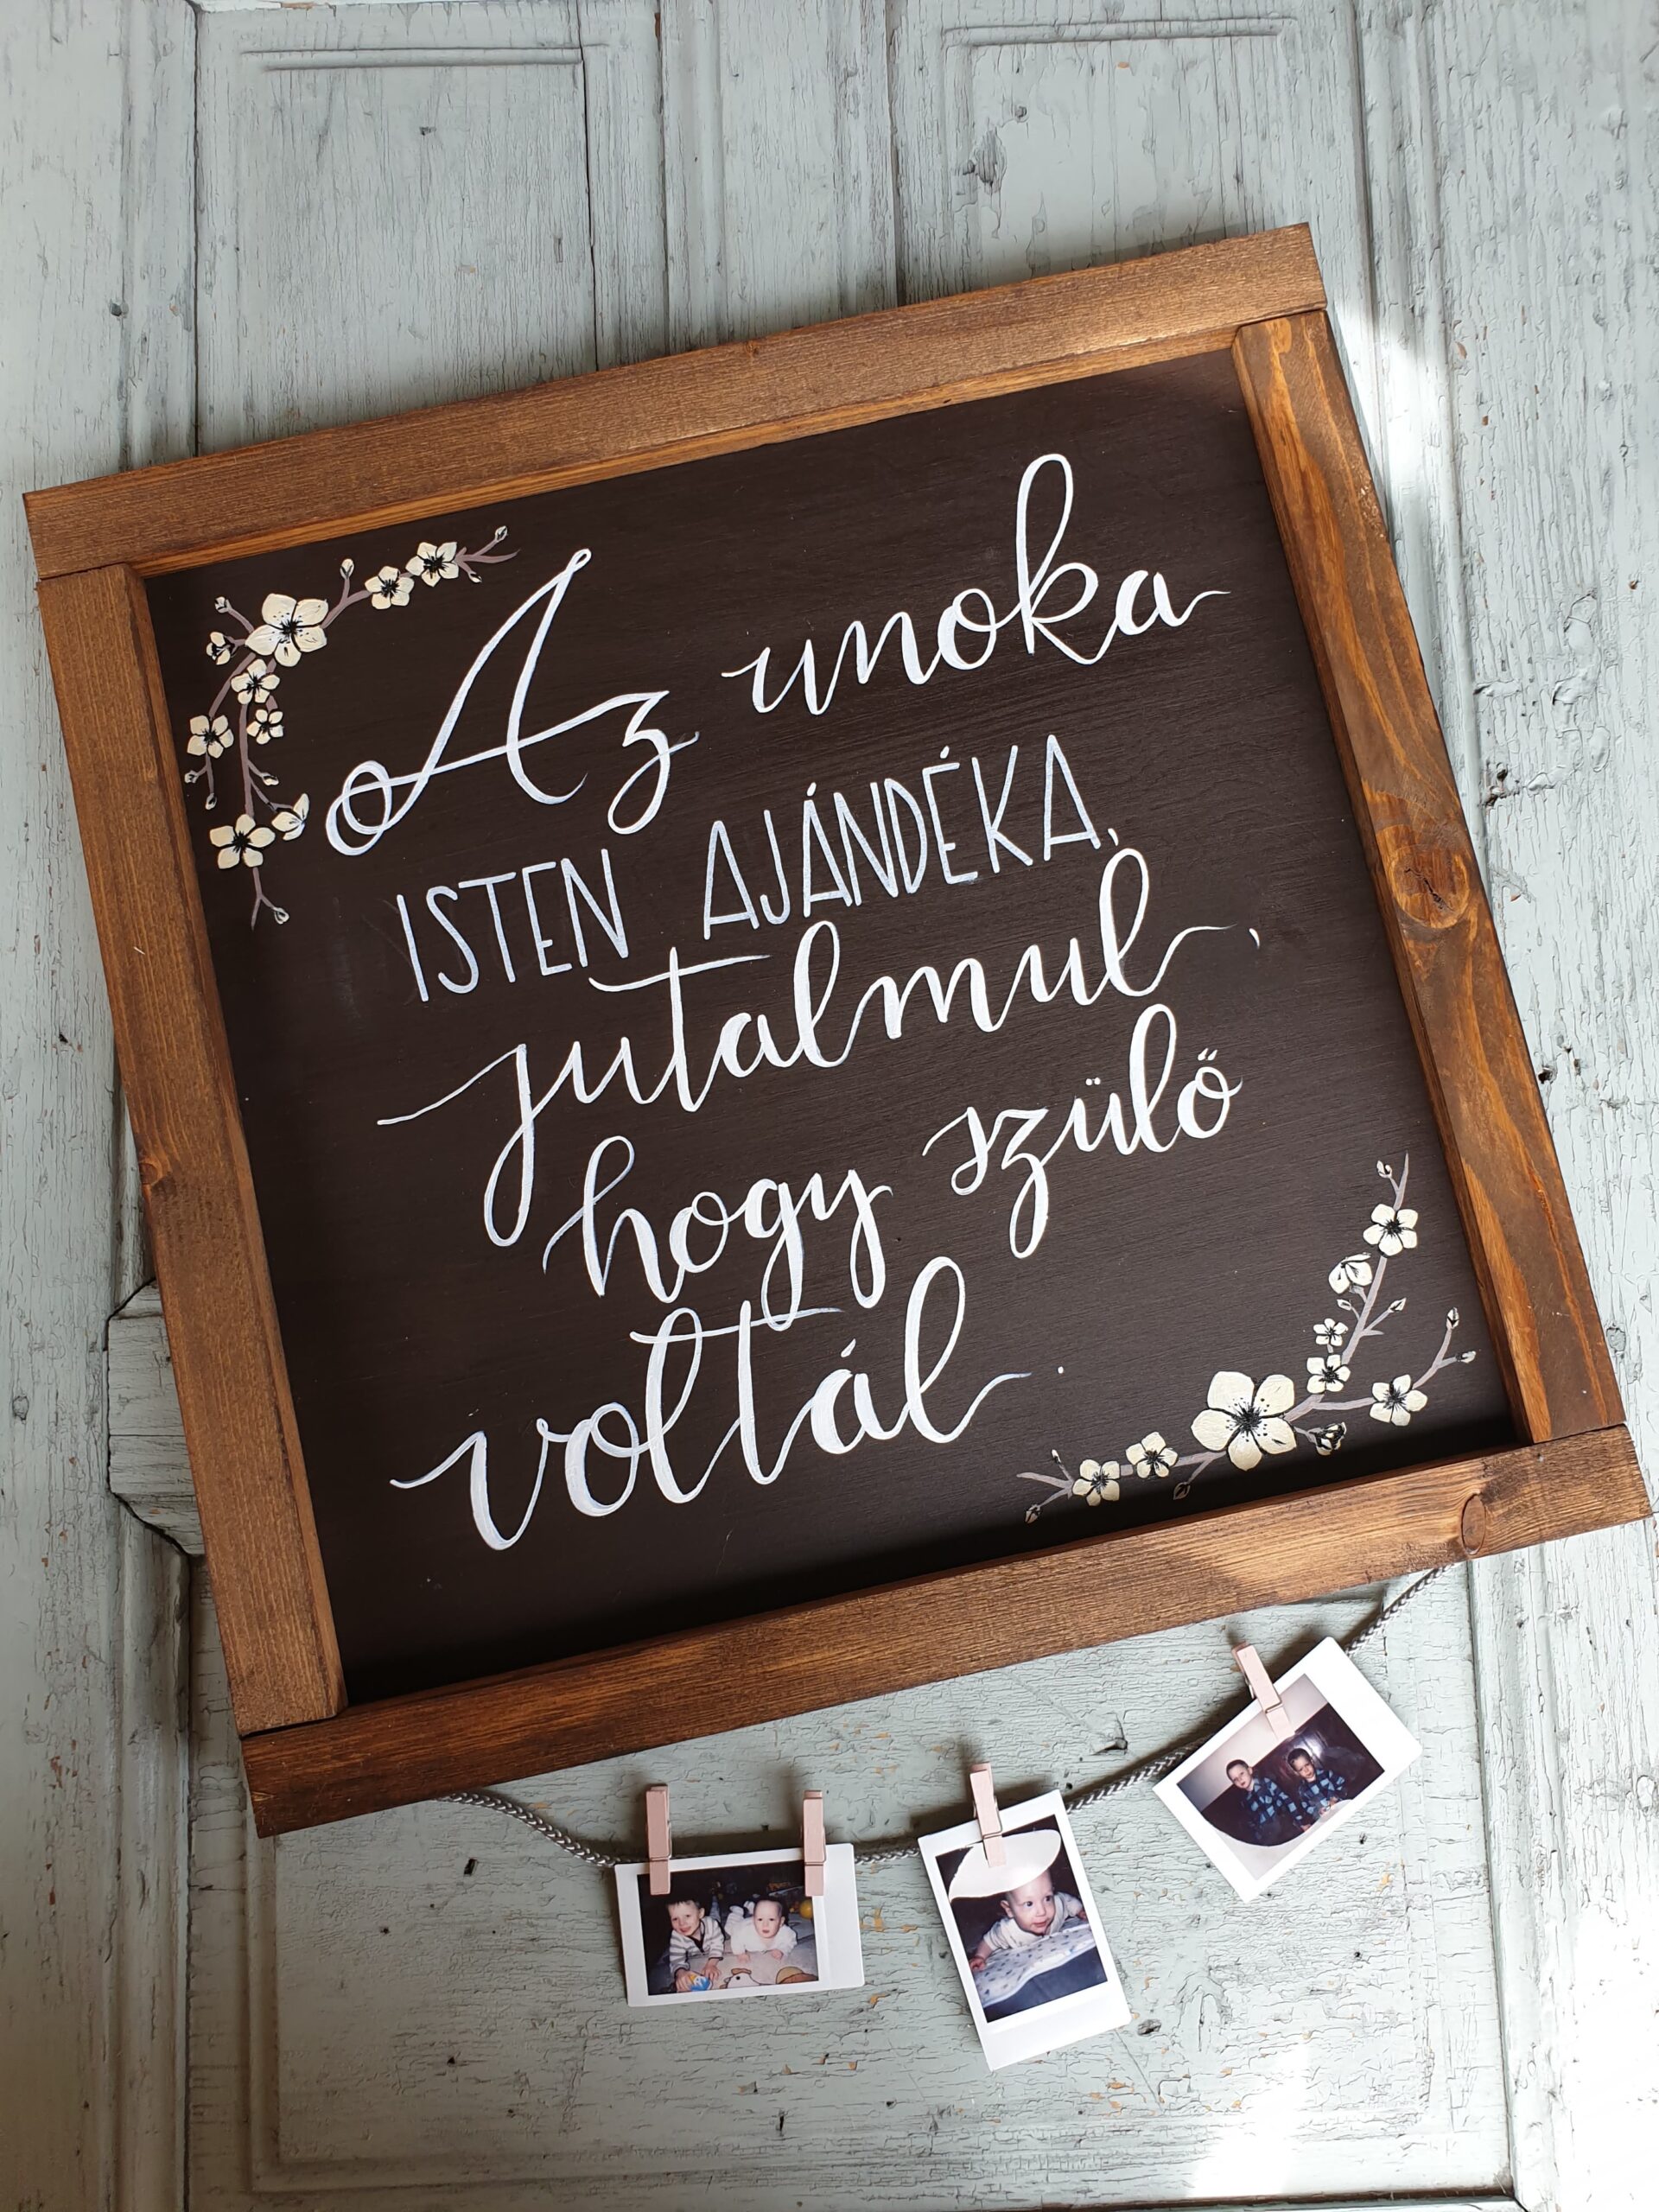 Az unoka
ISTEN AJÁNDÉKA,
jutalmul,
hogy szülő
voltál.